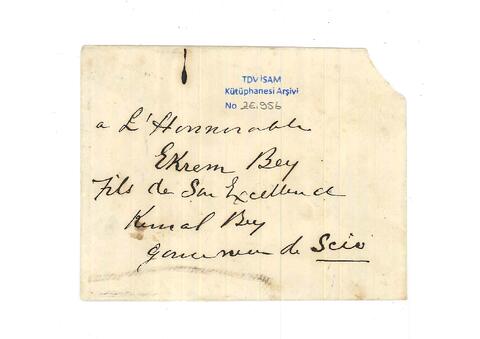 TDV İSAM
Kütüphanesi Arşivi
No 2E.956
a L'Honnorable
Ekrem Bey
Fils de Son Excellence
Kemal Bey
gouverneur de Scio